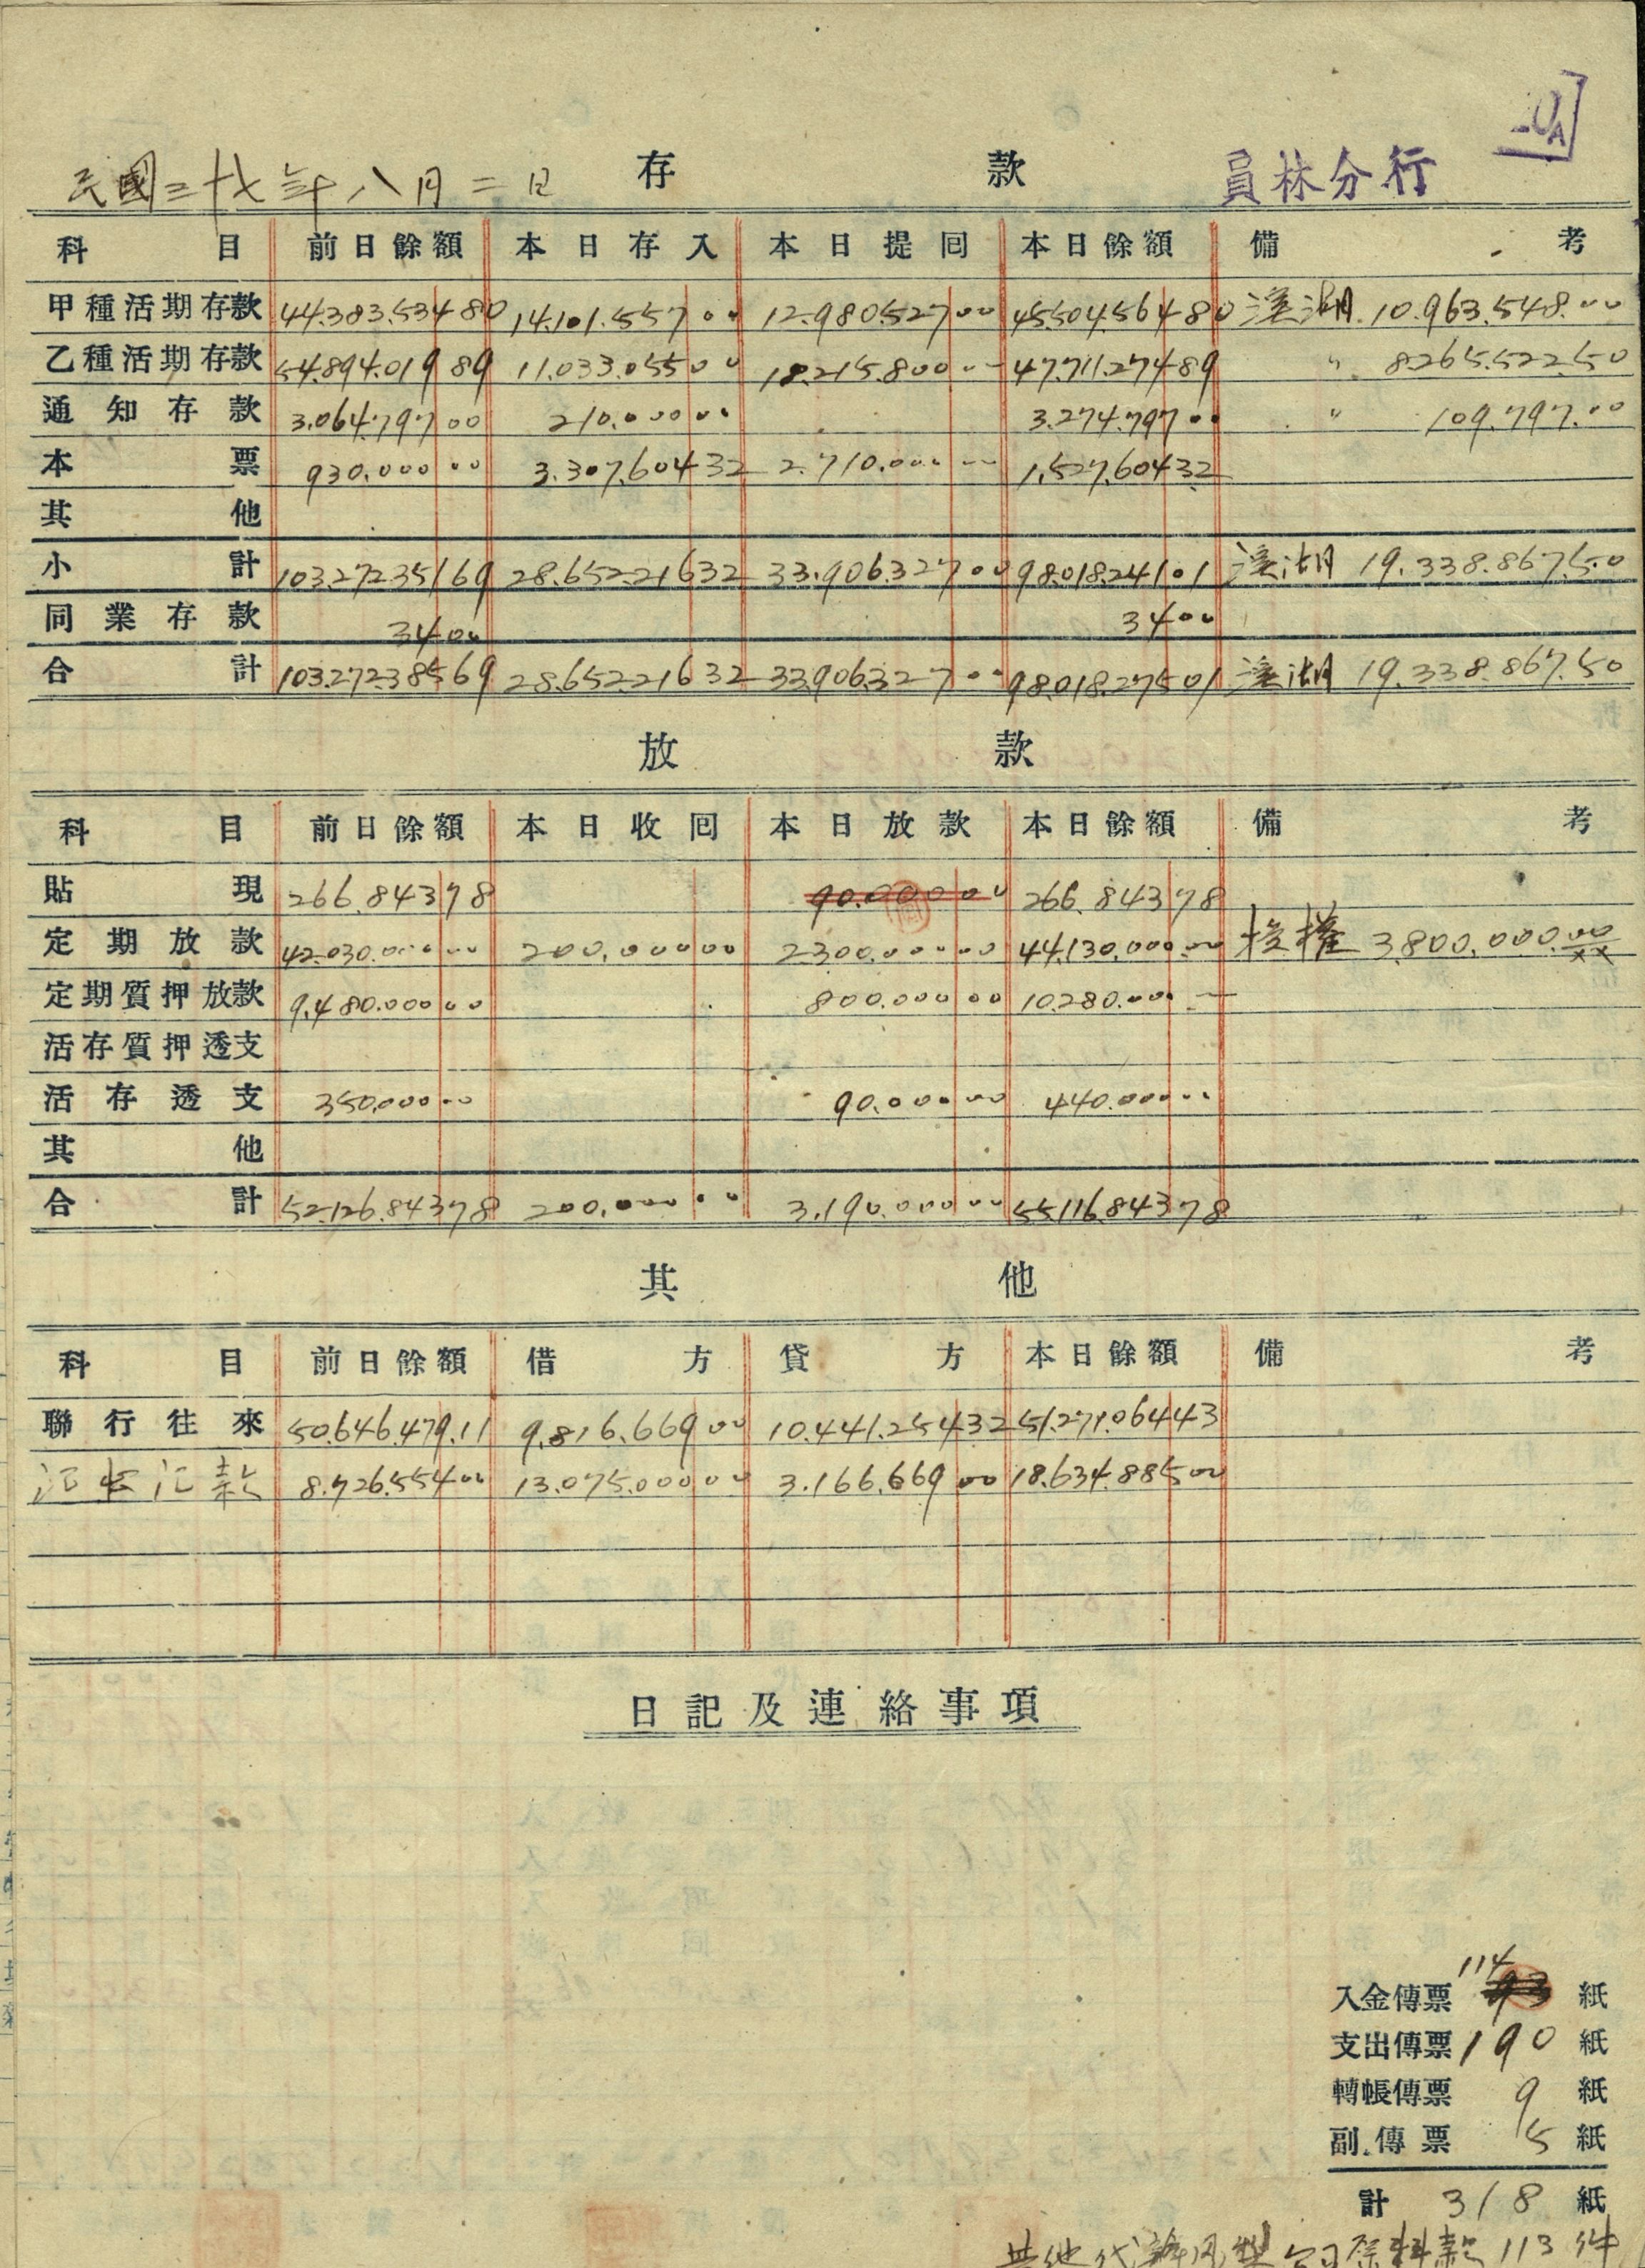 民國三十七年八月二日 存款 員林分行
科目 前日餘額 本日存入 本日提囘 本日餘額 備考
甲種活期存款 44.383.534 80 14.101.557 00 12.980.527 00 45.504.564 80 溪湖 10.963.548.00
乙種活期存款 54.894.019 89 11.033.055 00 18.215.800 00 47.711.274 89 〃 8.265.522.50
通知存款 3.064.797 00 210.000 00 3.274.797 00 〃 109.797.00
本票 930.000 00 3.307.604 32 2.710.000 00 1.527.604 32
其他
小計 103.272.351 69 28.652.216 32 33.906.327 00 98.018.241 01 溪湖 19.338.867.50
同業存款 34 00 34 00
合計 103.272.385 69 28.652.216 32 33.906.327 00 98.018.275 01 溪湖 19.338.867.50
放款
科目 前日餘額 本日收囘 本日放款 本日餘額 備考
貼現 266.843 78 90.000 00 266.843 78
定期放款 42.030.000 00 200.000 00 2.300.000 00 44.130.000 00 3.800.000.00
定期質押放款 9.480.000 00 800.000 00 10.280.000 —
活存質押透支
活存透支 350.000 00 90.000 00 440.000 00
其他
合計 52.126.843 78 200.000 00 3.190.000 00 55.116.843 78
其他
科目 前日餘額 借方 貸方 本日餘額 備考
聯行往來 50.646.479.11 9.816.669 00 10.441.254 32 51.271.064 43
汇款 8.726.554 00 13.075.000 00 3.166.669 00 18.634.885 00
日記及連絡事項
114
入金傳票 93 紙
支出傳票 190 紙
轉帳傳票 9 紙
副傳票 5 紙
計 318 紙
其他代 113 件